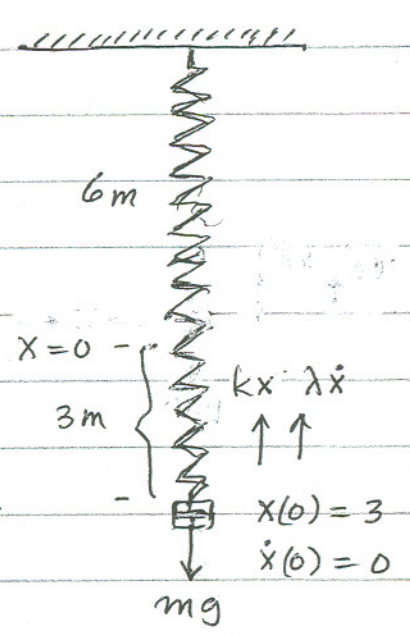 6m
x=0
3m
kx λẋ
x(0) = 3
ẋ(0) = 0
mg